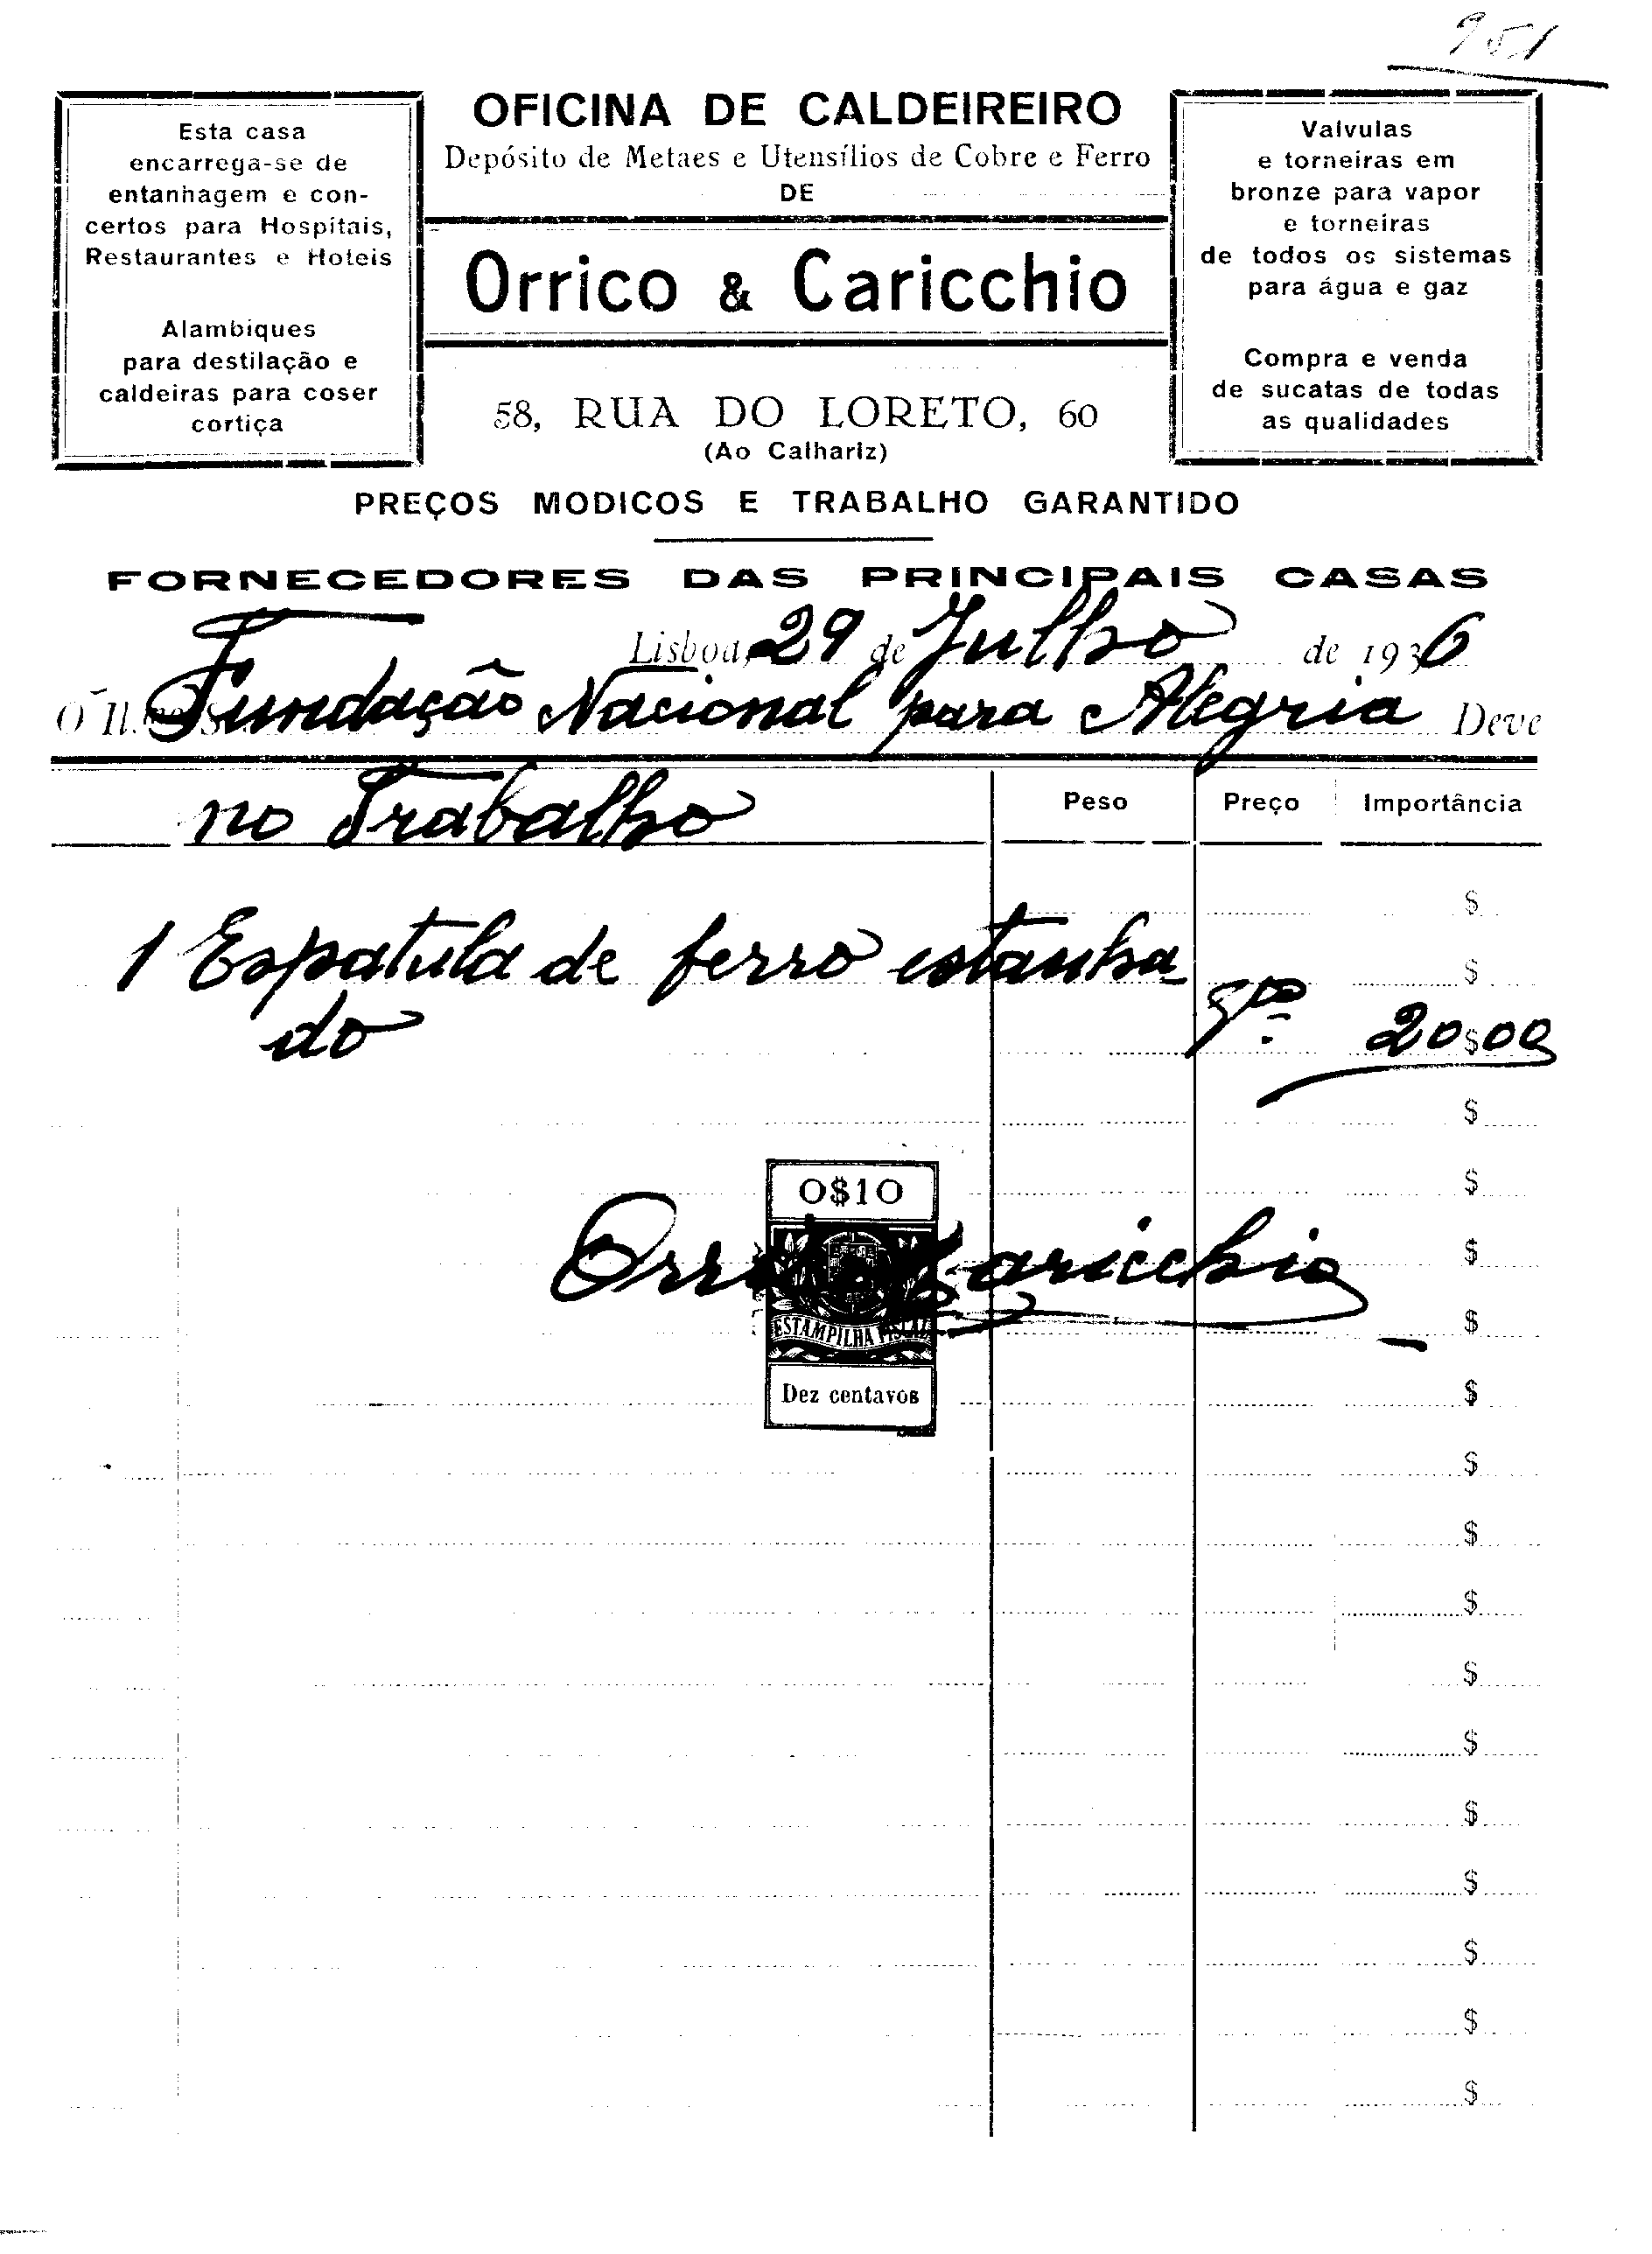 951
OFICINA DE CALDEIREIRO
Depósito de Metaes e Utensílios de Cobre e Ferro
DE
Orrico & Caricchio
58, RUA DO LORETO, 60
(Ao Calhariz)
Esta casa
encarrega-se de
entanhagem e con-
certos para Hospitais,
Restaurantes e Hoteis
Alambiques
para destilação e
caldeiras para coser
cortiça
Valvulas
e torneiras em
bronze para vapor
e torneiras
de todos os sistemas
para água e gaz
Compra e venda
de sucatas de todas
as qualidades
PREÇOS MODICOS E TRABALHO GARANTIDO
FORNECEDORES DAS PRINCIPAIS CASAS
Lisboa, 29 de Julho de 1936
O Il.mo S Fundação Nacional para Alegria Deve
no Trabalho
Peso Preço Importância
$
1 Espatula de ferro estanha- $
do 20$00
$
$
0$10
Orrico Caricchio $
ESTAMPILHA FISCAL $
Dez centavos $
$
$
$
$
$
$
$
$
$
$